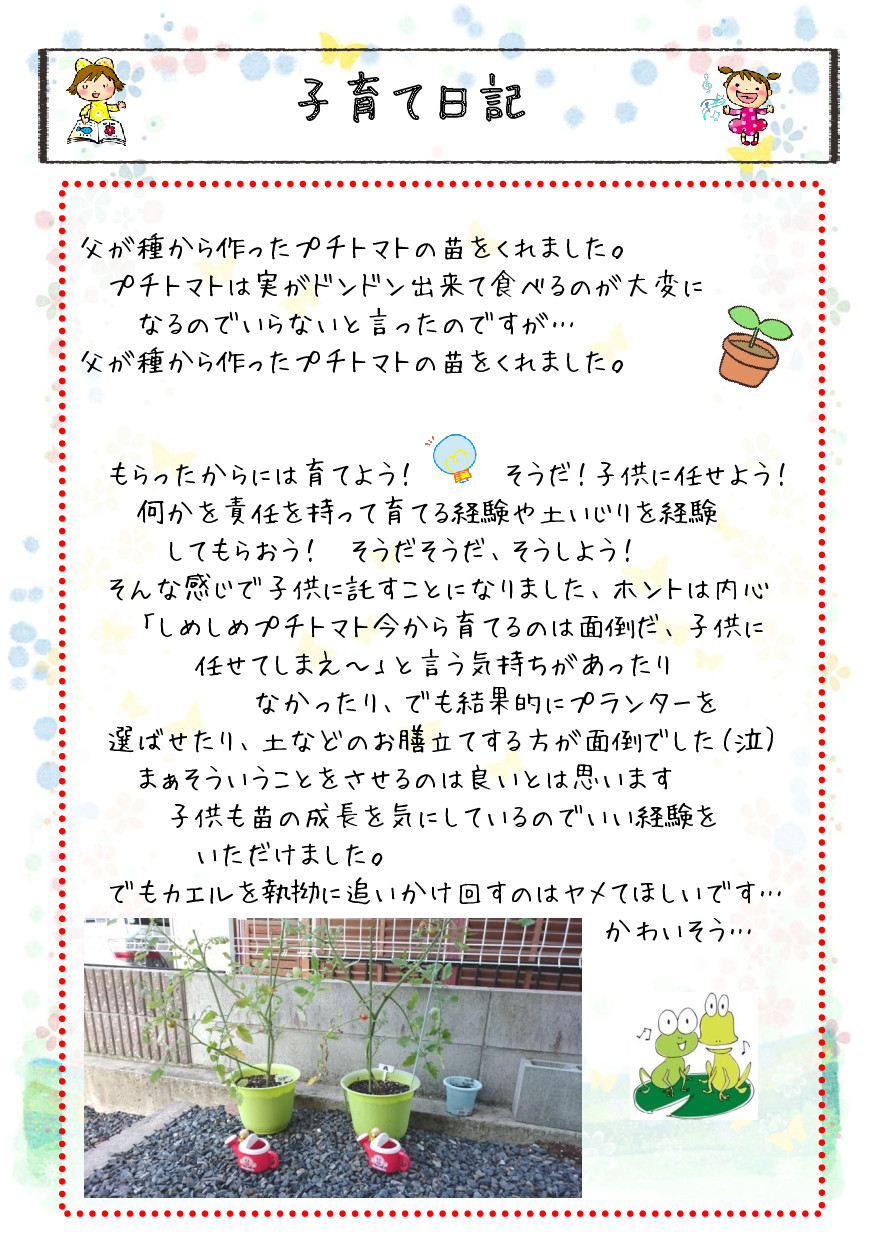 子育て日記
父が種から作ったプチトマトの苗をくれました。
プチトマトは実がドンドン出来て食べるのが大変に
なるのでいらないと言ったのですが…
父が種から作ったプチトマトの苗をくれました。
もらったからには育てよう！ そうだ！子供に任せよう！
何かを責任を持って育てる経験や土いじりを経験
してもらおう！ そうだそうだ、そうしよう！
そんな感じで子供に託すことになりました、ホントは内心
「しめしめプチトマト今から育てるのは面倒だ、子供に
任せてしまえ～」と言う気持ちがあったり
なかったり、でも結果的にプランターを
選ばせたり、土などのお膳立てする方が面倒でした（泣）
まぁそういうことをさせるのは良いとは思います
子供も苗の成長を気にしているのでいい経験を
いただけました。
でもカエルを執拗に追いかけ回すのはヤメてほしいです…
かわいそう…